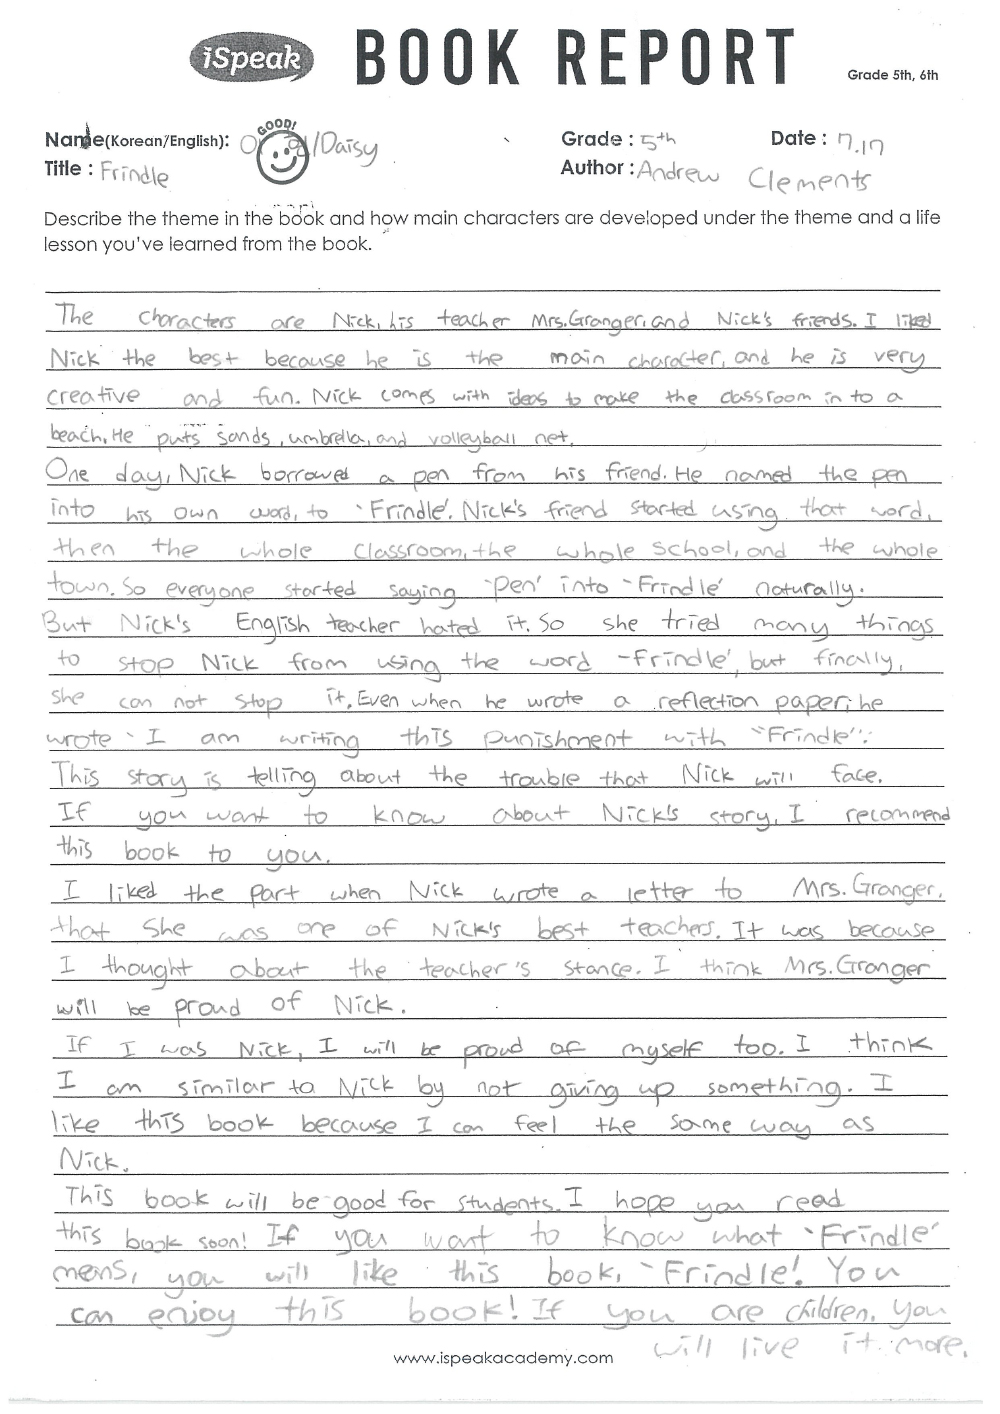 iSpeak BOOK REPORT Grade 5th, 6th
Name(Korean/English): /Daisy GOOD! Grade : 5th Date : 7.17
Title : Frindle Author : Andrew Clements
Describe the theme in the book and how main characters are developed under the theme and a life
lesson you've learned from the book.
The characters are Nick, his teacher Mrs.Granger, and Nick's friends. I liked
Nick the best because he is the main character, and he is very
creative and fun. Nick comes with ideas to make the classroom in to a
beach. He puts sands, umbrella, and volleyball net.
One day, Nick borrowed a pen from his friend. He named the pen
into his own word, to 'Frindle'. Nick's friend started using that word,
then the whole classroom, the whole school, and the whole
town. So everyone started saying 'pen' into 'Frindle' naturally.
But Nick's English teacher hated it. So she tried many things
to stop Nick from using the word -Frindle', but finally,
she can not stop it. Even when he wrote a reflection paper, he
wrote ' I am writing this punishment with "Frindle"'.
This story is telling about the trouble that Nick will face.
If you want to know about Nick's story, I recommend
this book to you.
I liked the part when Nick wrote a letter to Mrs. Granger,
that she was one of Nick's best teachers. It was because
I thought about the teacher's stance. I think Mrs. Granger
will be proud of Nick.
If I was Nick, I will be proud of myself too. I think
I am similar to Nick by not giving up something. I
like this book because I can feel the same way as
Nick.
This book will be good for students. I hope you read
this book soon! If you want to know what 'Frindle'
mens, you will like this book, 'Frindle'! You
can enjoy this book! If you are children, you
will live it more.
www.ispeakacademy.com